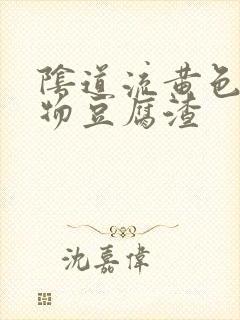 陰道流黄色
物豆腐渣
沈嘉偉